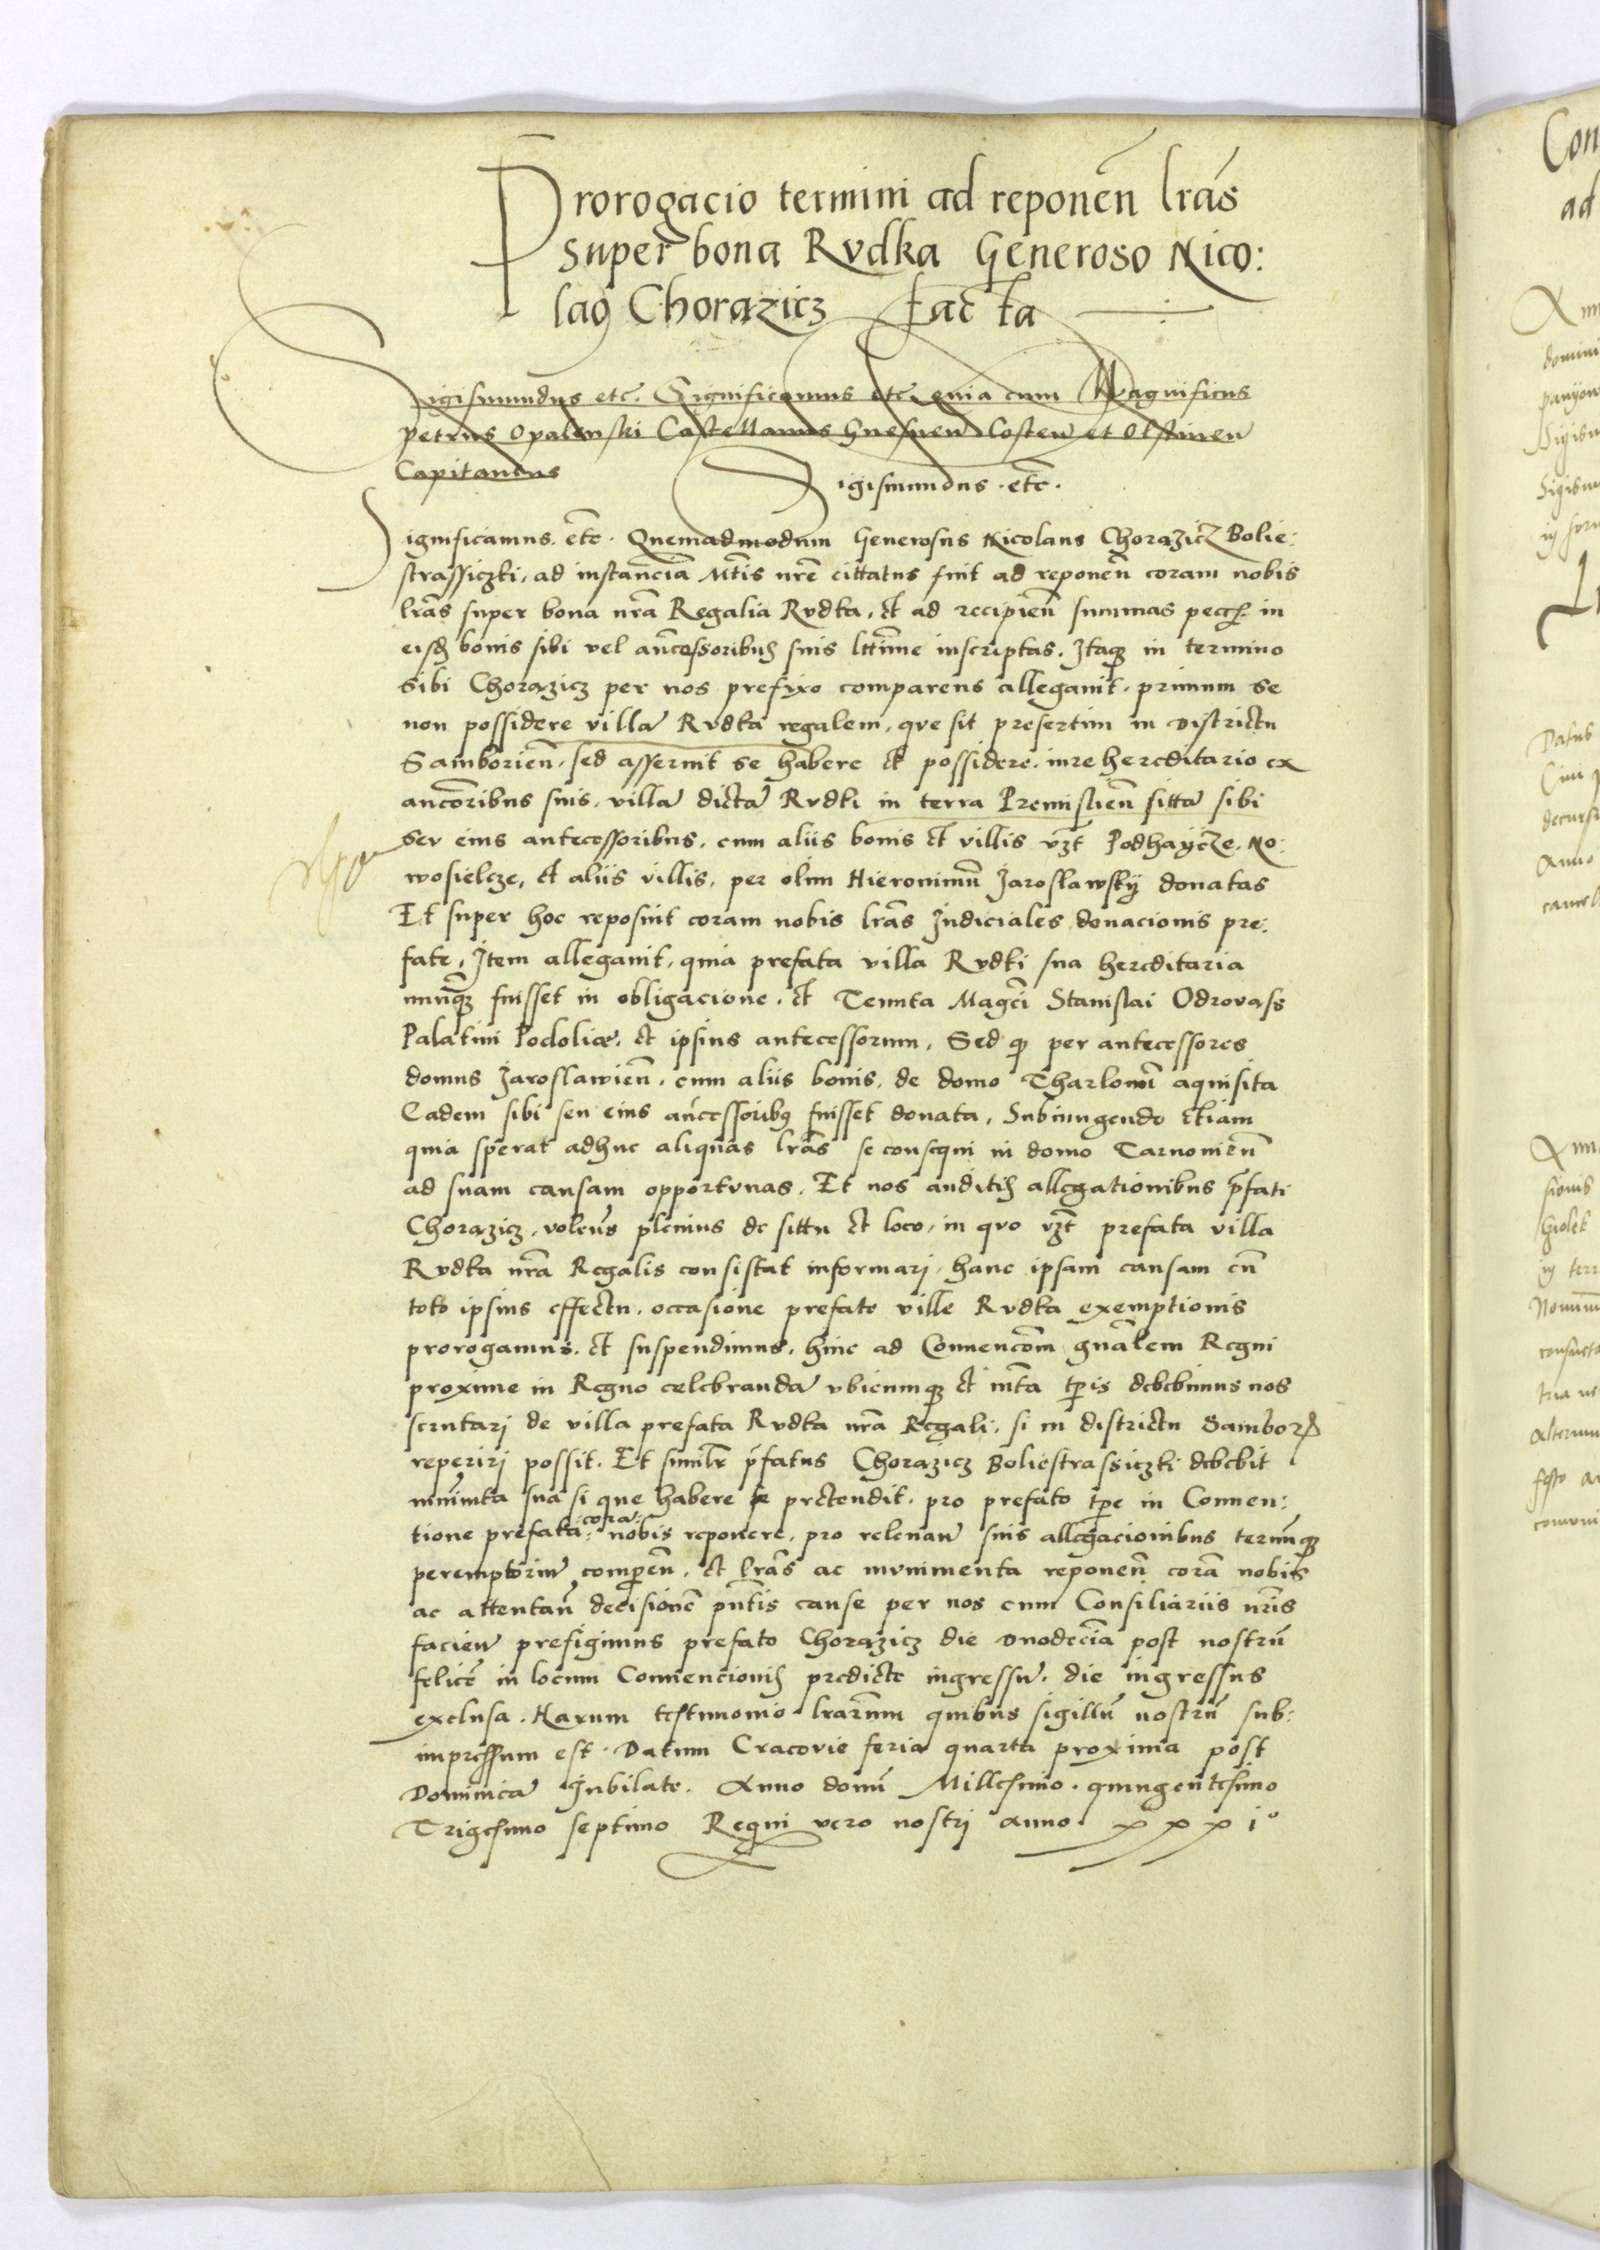 Prorogacio termini ad reponeñ lrãs
super bona Rvdka Generoso Nico:
lao Chorazicz facta
Sigismundus etc. Significamus etc. quia cum Magnificus
Petrus Opalenski Castellanus Gnesnen Costen et Olstinen
Capitaneus
Sigismundus etc.
Significamus. etc. Quemadmodum Generosus Nicolaus Chorazicz Bolie:
strassiczki, ad instanciã Mtis nrẽ cittatus fuit ad reponeñ coram nobis
lrãs super bona nrã Regalia Rvdka, et ad recipieñ summas pecc. in
eisd bonis sibi vel añcessoribus suis lttime inscriptas. Itaq in termino
sibi Chorazicz per nos prefixo comparens allegauit. primum se
non possidere villã Rvdka regalem, que sit presertim in districtu
Samborieñ, sed asseruit se habere et possidere. iure hereditario ex
ancõribus suis. villã dictã Rvdki in terra Premislieñ sittã sibi
sev eius antecessoribus, cum aliis bonis et villis vzt Podhaycze. No:
wosielcze, et aliis villis, per olim Hieronimũ Jaroslawsky donatas
Et super hoc reposuit coram nobis lrãs Iudiciales donacionis pre:
fate, Item allegauit, quia prefata villa Rvdki sua hereditaria
nunq̃ fuisset in obligacione. et Tenuta Magci Stanislai Odrovass
Palatini Podolie. et ipsius antecessorum, Sed q per antecessores
domus Jaroslawieñ, cum aliis bonis, de domo Tharlowi aquisita
Eadem sibi seu eius añcessoribus fuisset donata, Subiungendo etiam
quia sperat adhuc aliquas lrãs se consequi in domo Tarnouieñ
ad suam causam opportvnas. Et nos auditis allegationibus p̃fati
Chorazicz, voleñs plenius de sittu et loco, in quo vzt prefata villa
Rvdka nrã Regalis consistat informari, hanc ipsam causam cũ
toto ipsius effectu, occasione prefate ville Rvdka exemptionis
prorogamus. et suspendimus, hinc ad Conuencõm gnãlem Regni
proxime in Regno celebrandã vbicumq et intã tpis debebimus nos
scrutari de villa prefata Rvdka nrã Regali, si in districtu Sambor
reperiri possit. Et similr p̃fatus Chorazicz Boliestrassiczki debebit
munimta sua si que habere se pretendit. pro prefato tpe in Conuen:
tione prefata corã nobis reponere, pro releuan suis allegacionibus termũq
peremptoriũ compareñ, et lrãs ac mvnimenta reponeñ corã nobis
ac attentañ decisionẽ pñtis cause per nos cum Consiliariis nrĩs
facien prefigimus prefato Chorazicz die duodecĩa post nostrũ
felicẽ in locum Conuencionis predicte ingressũ. die ingressus
exclusa. Harum testimonio lrarum quibus sigillũ nostrũ sub:
impressum est. Datum Cracovie feria quarta proxima post
Dominicã Jubilate. Anno domi Millesimo. quingentesimo
Trigesimo septimo Regni vero nostri anno. xxxi°